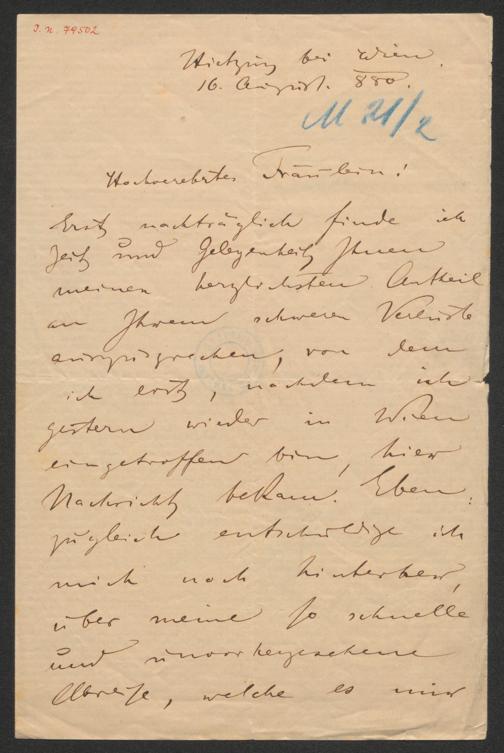 I. N. 79502
Hietzing bei Wien.
16. August. 880.
M 21/2
Hochverehrtes Fräulein!
Erst nachträglich finde ich
Zeit und Gelegenheit Ihnen
meinen herzlichsten Antheil
an Ihrem schweren Verluste
auszusprechen, von dem
ich erst, nachdem ich
gestern wieder in Wien
eingetroffen bin, hier
Nachricht bekam. Eben-
zugleich entschuldige ich
mich noch hinterher,
über meine so schnelle
und unvorhergesehene
Abreise, welche es mir